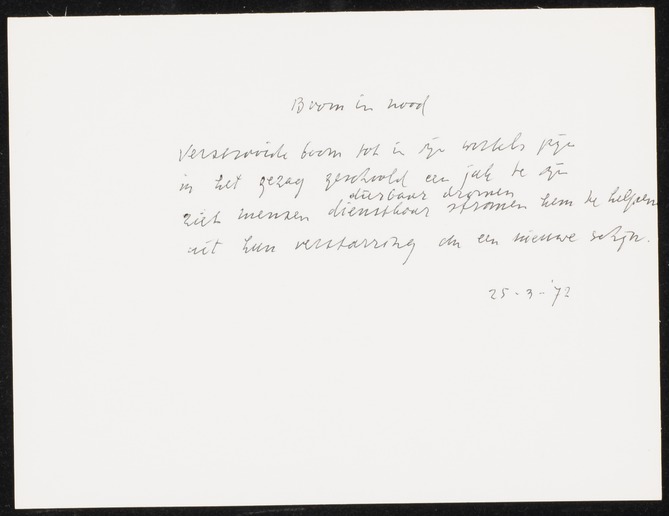 Boom in nood
verstrooide boom tot in zijn wortels pijn
in het gezag geschoold een juk te zijn
duurbaar dromen
ziet mensen dienstbaar stromen hem te helpen
uit hun verstarring en een nieuwe schijn.
25-3-'72